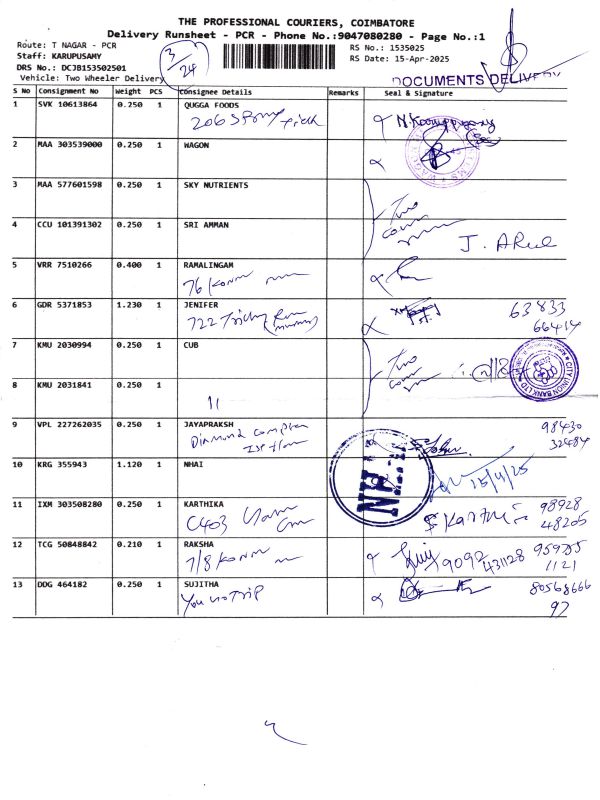 THE PROFESSIONAL COURIERS, COIMBATORE
Delivery Runsheet - PCR - Phone No.:9047080280 - Page No.:1
Route: T NAGAR - PCR
Staff: KARUPUSAMY
DRS No.: DCJB153502501
Vehicle: Two Wheeler Delivery
3/24
RS No.: 1535025
RS Date: 15-Apr-2025
DOCUMENTS DELIVERY
S No Consignment No Weight PCS Consignee Details Remarks Seal & Signature
1 SVK 10613864 0.250 1 QUGGA FOODS
206
2 MAA 303539000 0.250 1 WAGON
3 MAA 577601598 0.250 1 SKY NUTRIENTS
Two
4 CCU 101391302 0.250 1 SRI AMMAN
J. ARul
5 VRR 7510266 0.400 1 RAMALINGAM
76
6 GDR 5371853 1.230 1 JENIFER
722 Trichy
63833
66414
7 KMU 2030994 0.250 1 CUB
Two
CITY UNION BANK LTD
8 KMU 2031841 0.250 1
11
9 VPL 227262035 0.250 1 JAYAPRAKSH
Diamond
98430
32484
10 KRG 355943 1.120 1 NHAI
NHAI
15/4/25
11 IXM 303508280 0.250 1 KARTHIKA
C403
98928
48205
12 TCG 50848842 0.210 1 RAKSHA
7/8
9092 431128
95975
1121
13 DDG 464182 0.250 1 SUJITHA
You no Trip
80568666
97